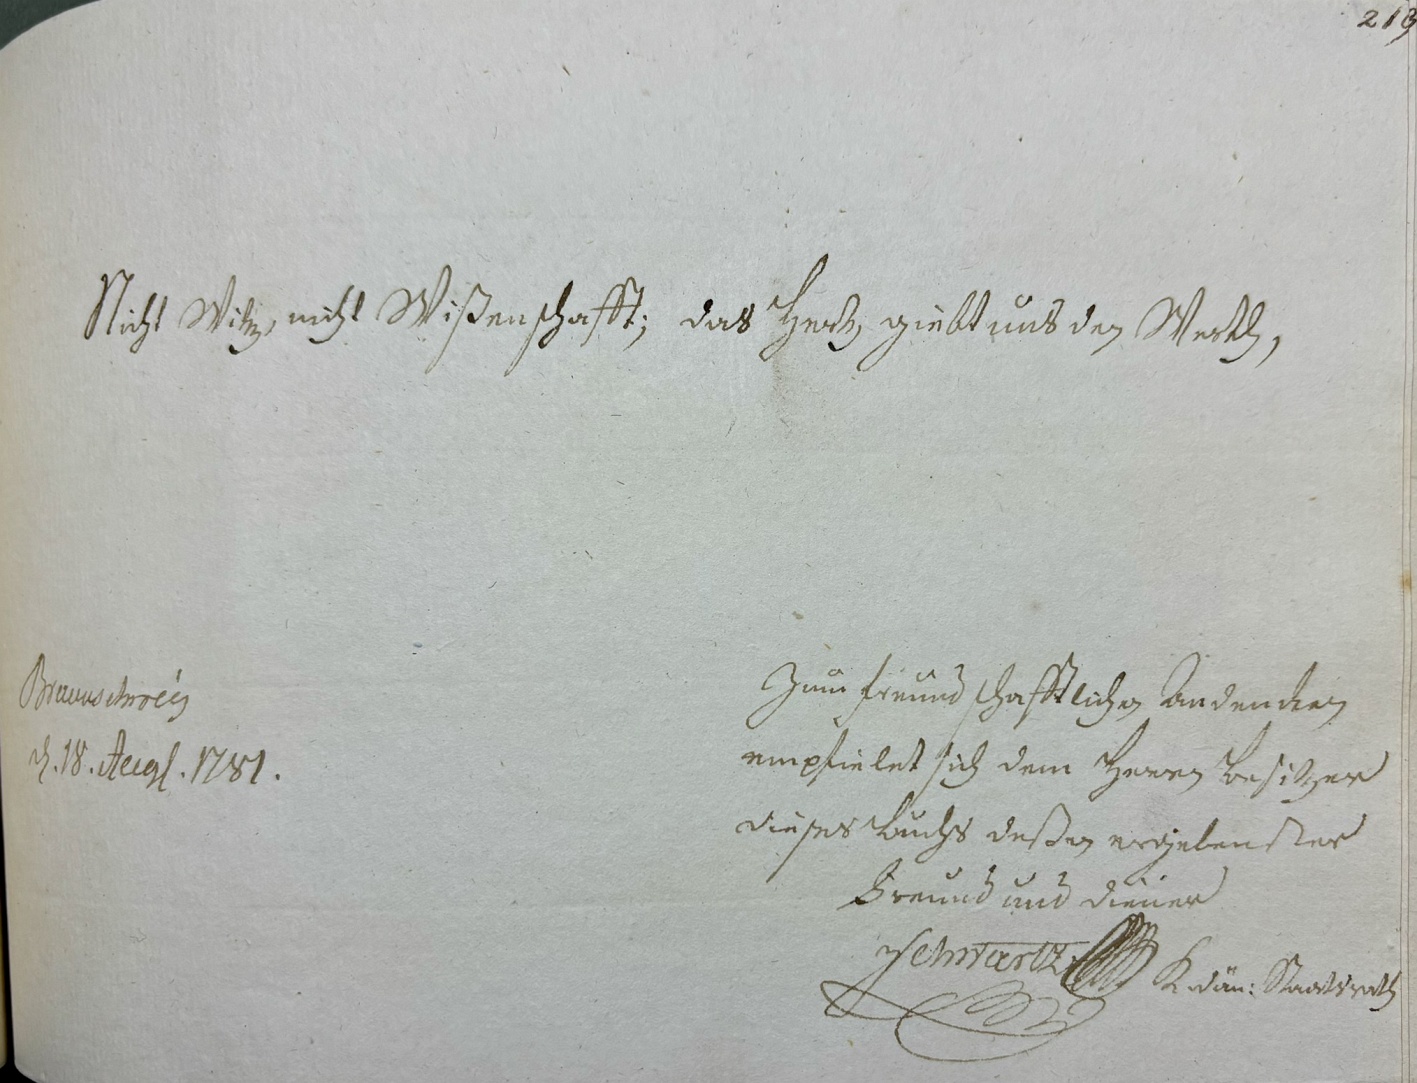 213
Nicht Witz, nicht Wißenschafft; das Hertz giebt uns den Werth,
Braunschweig
d. 18. Augl. 1781.
Zum freundschafftlichen Andencken
empfielet sich dem Herrn Besitzer
dieses Buchs deßen ergebenster
Freund und Diener
Schwartz K. dän: Staatsrath